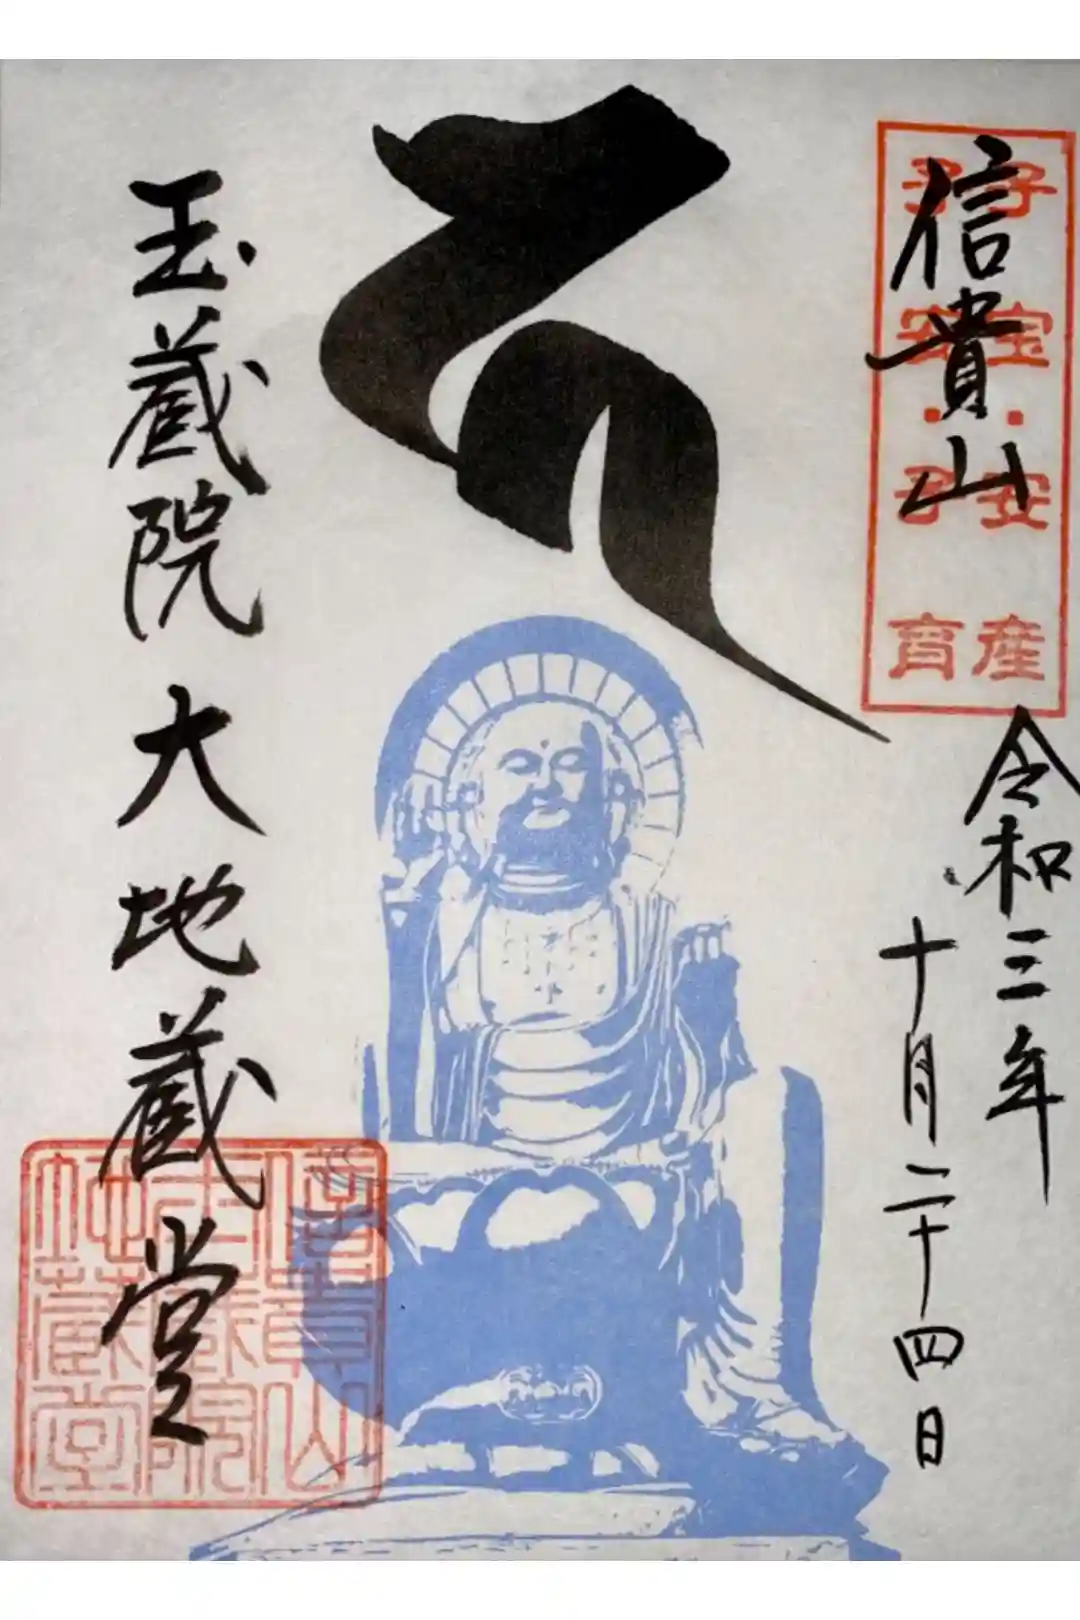 子宝・安産
子安・子育
信貴山
令和三年
十月二十四日
玉蔵院 大地蔵堂
信貴山
玉蔵院
地蔵堂